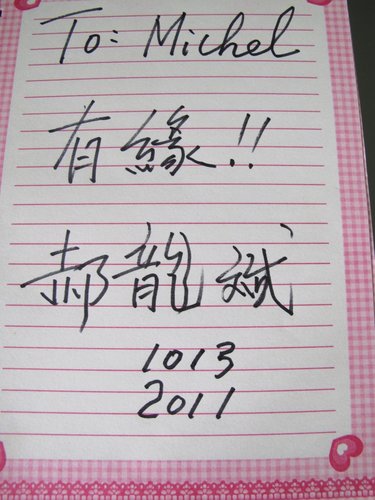 To: Michel
有緣!!
郝龍斌
1013
2011